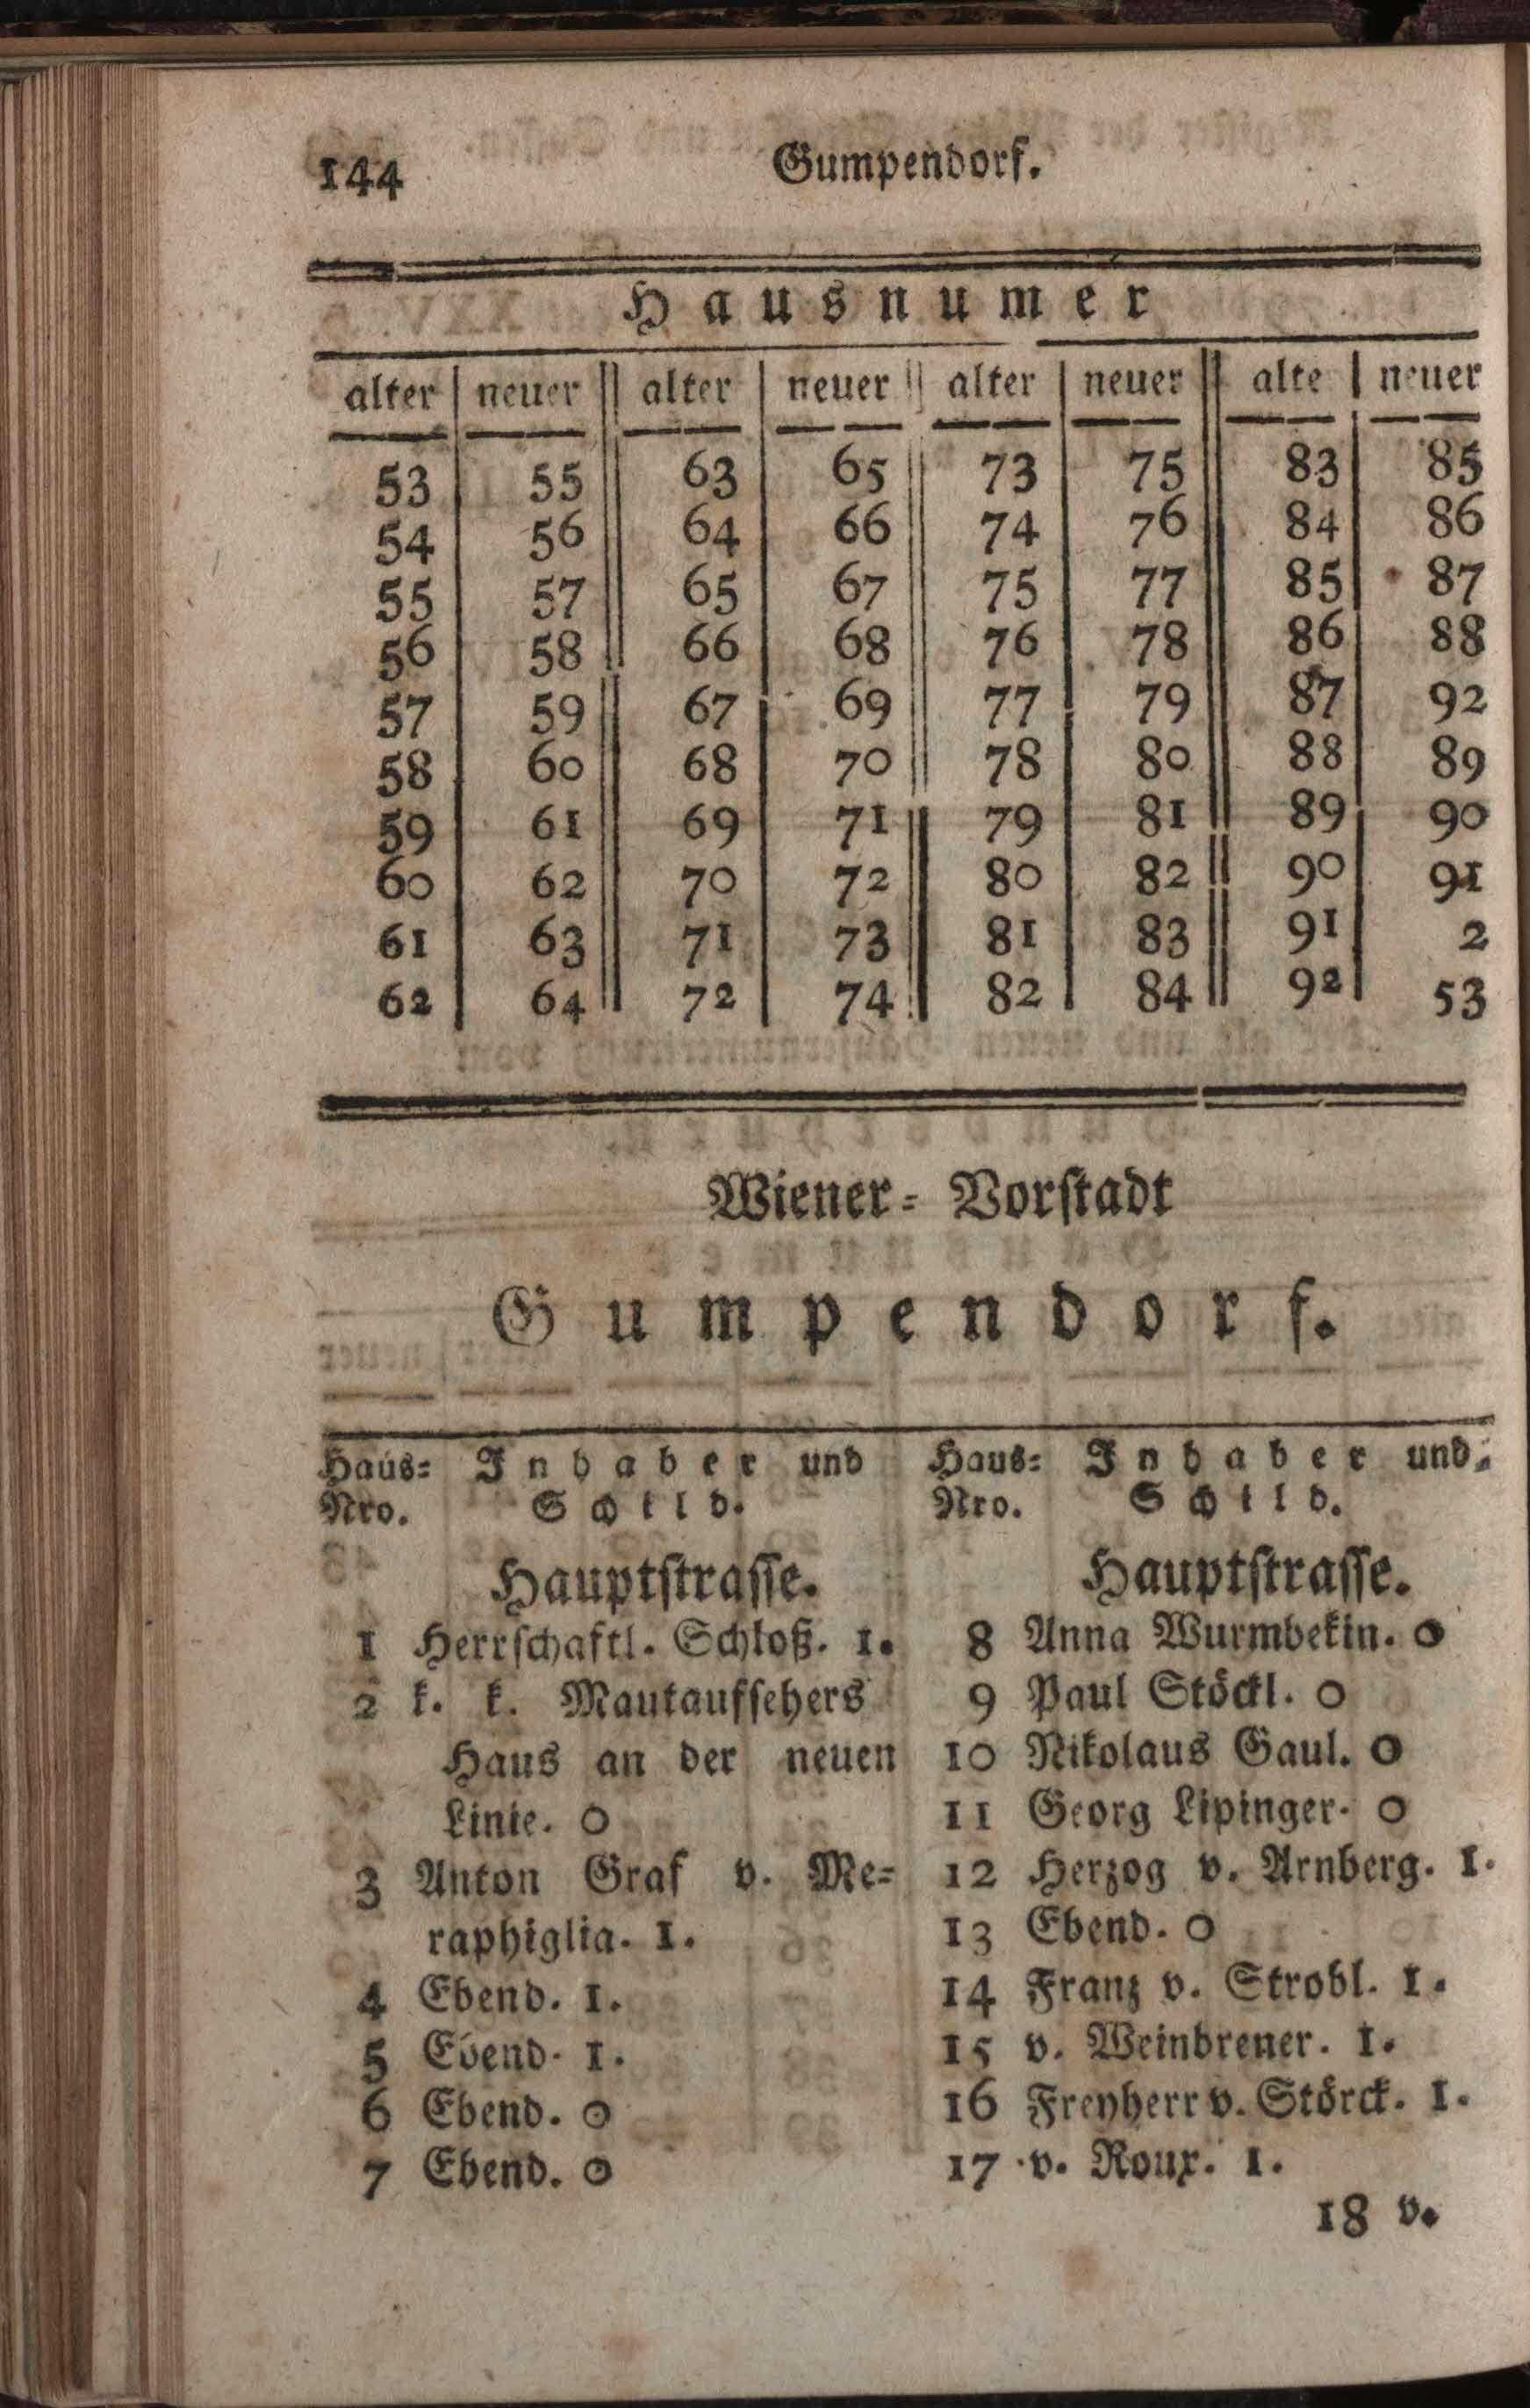 144 Gumpendorf.
Hausnumer
alter neuer alter neuer alter neuer alte neuer
53 55 63 65 73 75 83 85
54 56 64 66 74 76 84 86
55 57 65 67 75 77 85 87
56 58 66 68 76 78 86 88
57 59 67 69 77 79 87 92
58 60 68 70 78 80 88 89
59 61 69 71 79 81 89 90
60 62 70 72 80 82 90 91
61 63 71 73 81 83 91 2
62 64 72 74 82 84 92 53
Wiener-Vorstadt
Gumpendorf.
Haus- Inhaber und
Nro. Schild.
Hauptstrasse.
1 Herrschaftl. Schloß. 1.
2 k. k. Mautaufsehers
Haus an der neuen
Linie. 0
3 Anton Graf v. Me-
raphiglia. 1.
4 Ebend. 1.
5 Ebend. 1.
6 Ebend. 0
7 Ebend. 0
Haus- Inhaber und
Nro. Schild.
Hauptstrasse.
8 Anna Wurmbekin. 0
9 Paul Stöckl. 0
10 Nikolaus Gaul. 0
11 Georg Lipinger. 0
12 Herzog v. Arnberg. 1.
13 Ebend. 0
14 Franz v. Strobl. 1.
15 v. Weinbrener. 1.
16 Freyherr v. Störck. 1.
17 v. Roux. 1.
18 v.